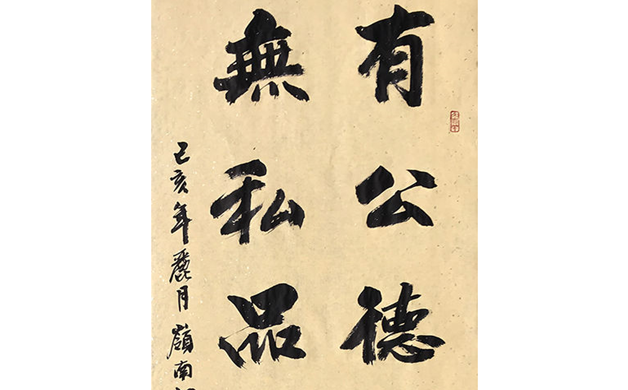 有公德
無私品
己亥年麗月嶺南